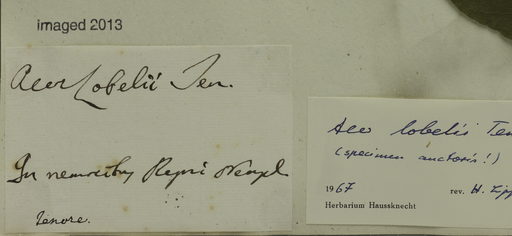 imaged 2013
Acer Lobelii Ten.
In nemoribus Regni Neapl
Tenore.
Acer lobelii Ten
(specimen auctoris!)
1967 rev. H.
Herbarium Haussknecht